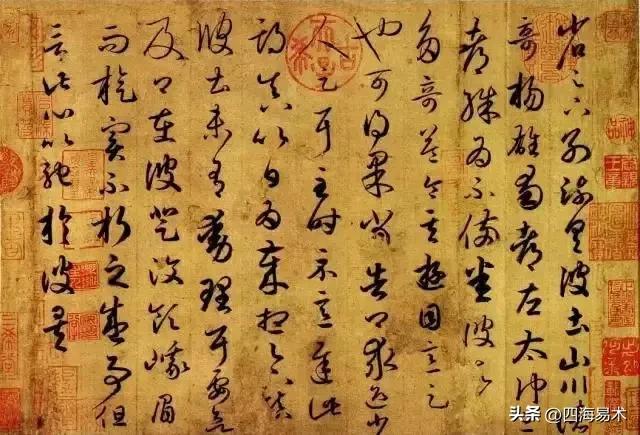 省足下別疏具彼土山川諸
奇楊雄蜀都左太沖三
都殊為不備悉彼故為
多奇益令其遊目意足
也可得果當告卿求迎少
人足耳至時示意遲此
期真以日為歲想足下鎮
彼土未有動理耳要欲
及卿在彼登汶領峨眉
而旋實不朽之盛事但
言此心以馳於彼矣
头条 @四海易术